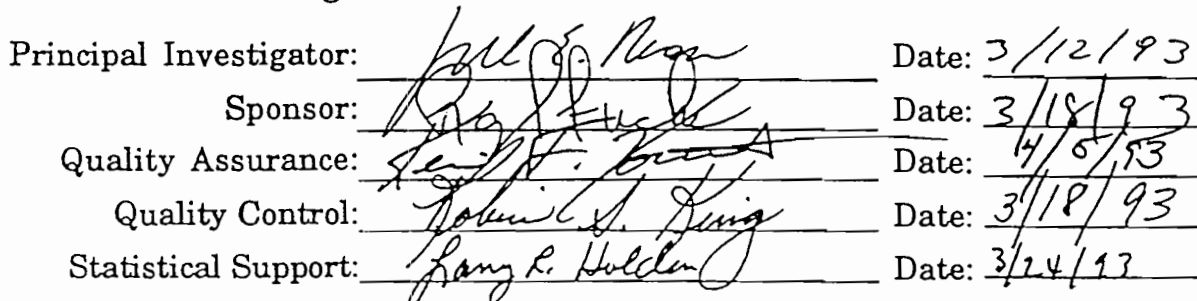 Principal Investigator: Date: 3/12/93
Sponsor: Date: 3/18/93
Quality Assurance: Date: 4/5/93
Quality Control: Robin S. King Date: 3/18/93
Statistical Support: Larry R. Holden Date: 3/24/93